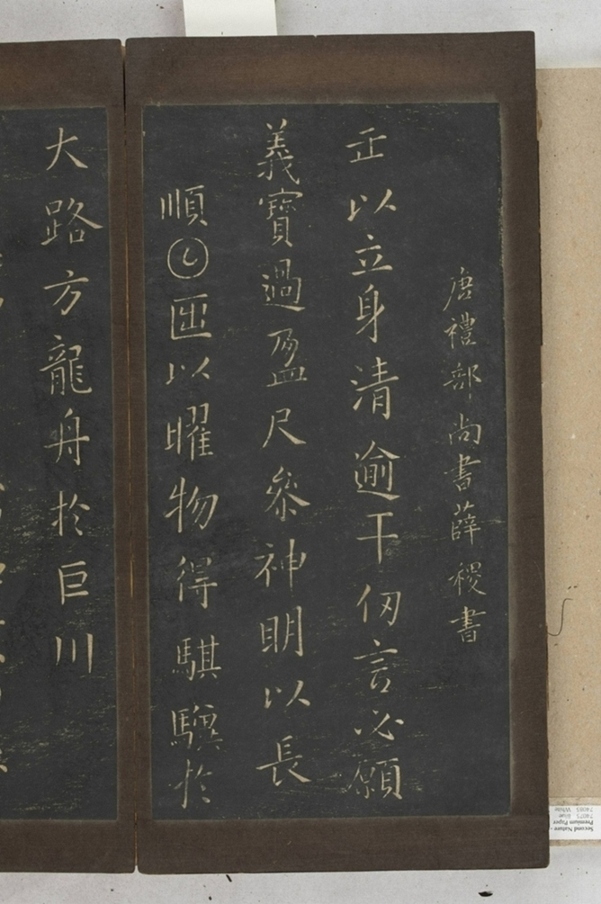 唐禮部尚書薛稷書
正以立身清逾千仞言必顧
義寶過盈尺參神明以長
順𡆠𠥱以曜物得騏驥於
大路方龍舟於巨川
Second Nature -
Premium Paper